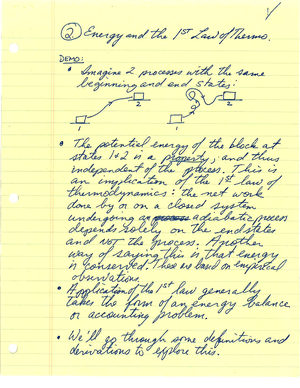 2 Energy and the 1ST Law of Thermo.
DEMO:
• Imagine 2 processes with the same
beginning and end states:
2
2
1
1
• The potential energy of the block at
states 1 & 2 is a property, and thus
independent of the process. This is
an implication of the 1st law of
thermodynamics: the net work
done by or on a closed system
undergoing an adiabatic process
depends solely on the end states
and NOT the process. Another
way of saying this is that energy
is conserved. These are based on empirical
observations.
• Application of the 1st law generally
takes the form of an energy balance
or accounting problem.
• We'll go through some definitions and
derivations to explore this.